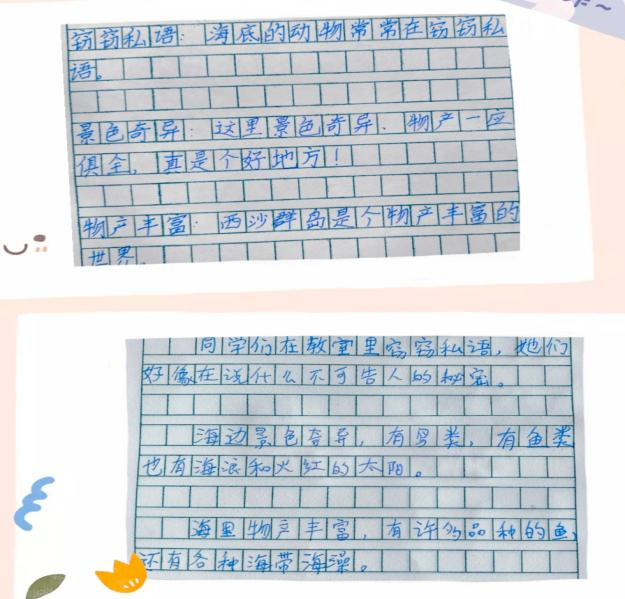 窃窃私语：海底的动物常常在窃窃私
语。
景色奇异：这里景色奇异、物产一应
俱全，真是个好地方！
物产丰富：西沙群岛是个物产丰富的
世界.
同学们在教室里窃窃私语，她们
好像在说什么不可告人的秘密。
海边景色奇异，有鸟类，有鱼类
也有海浪和火红的太阳。
海里物产丰富，有许多品种的鱼，
还有各种海带海澡。